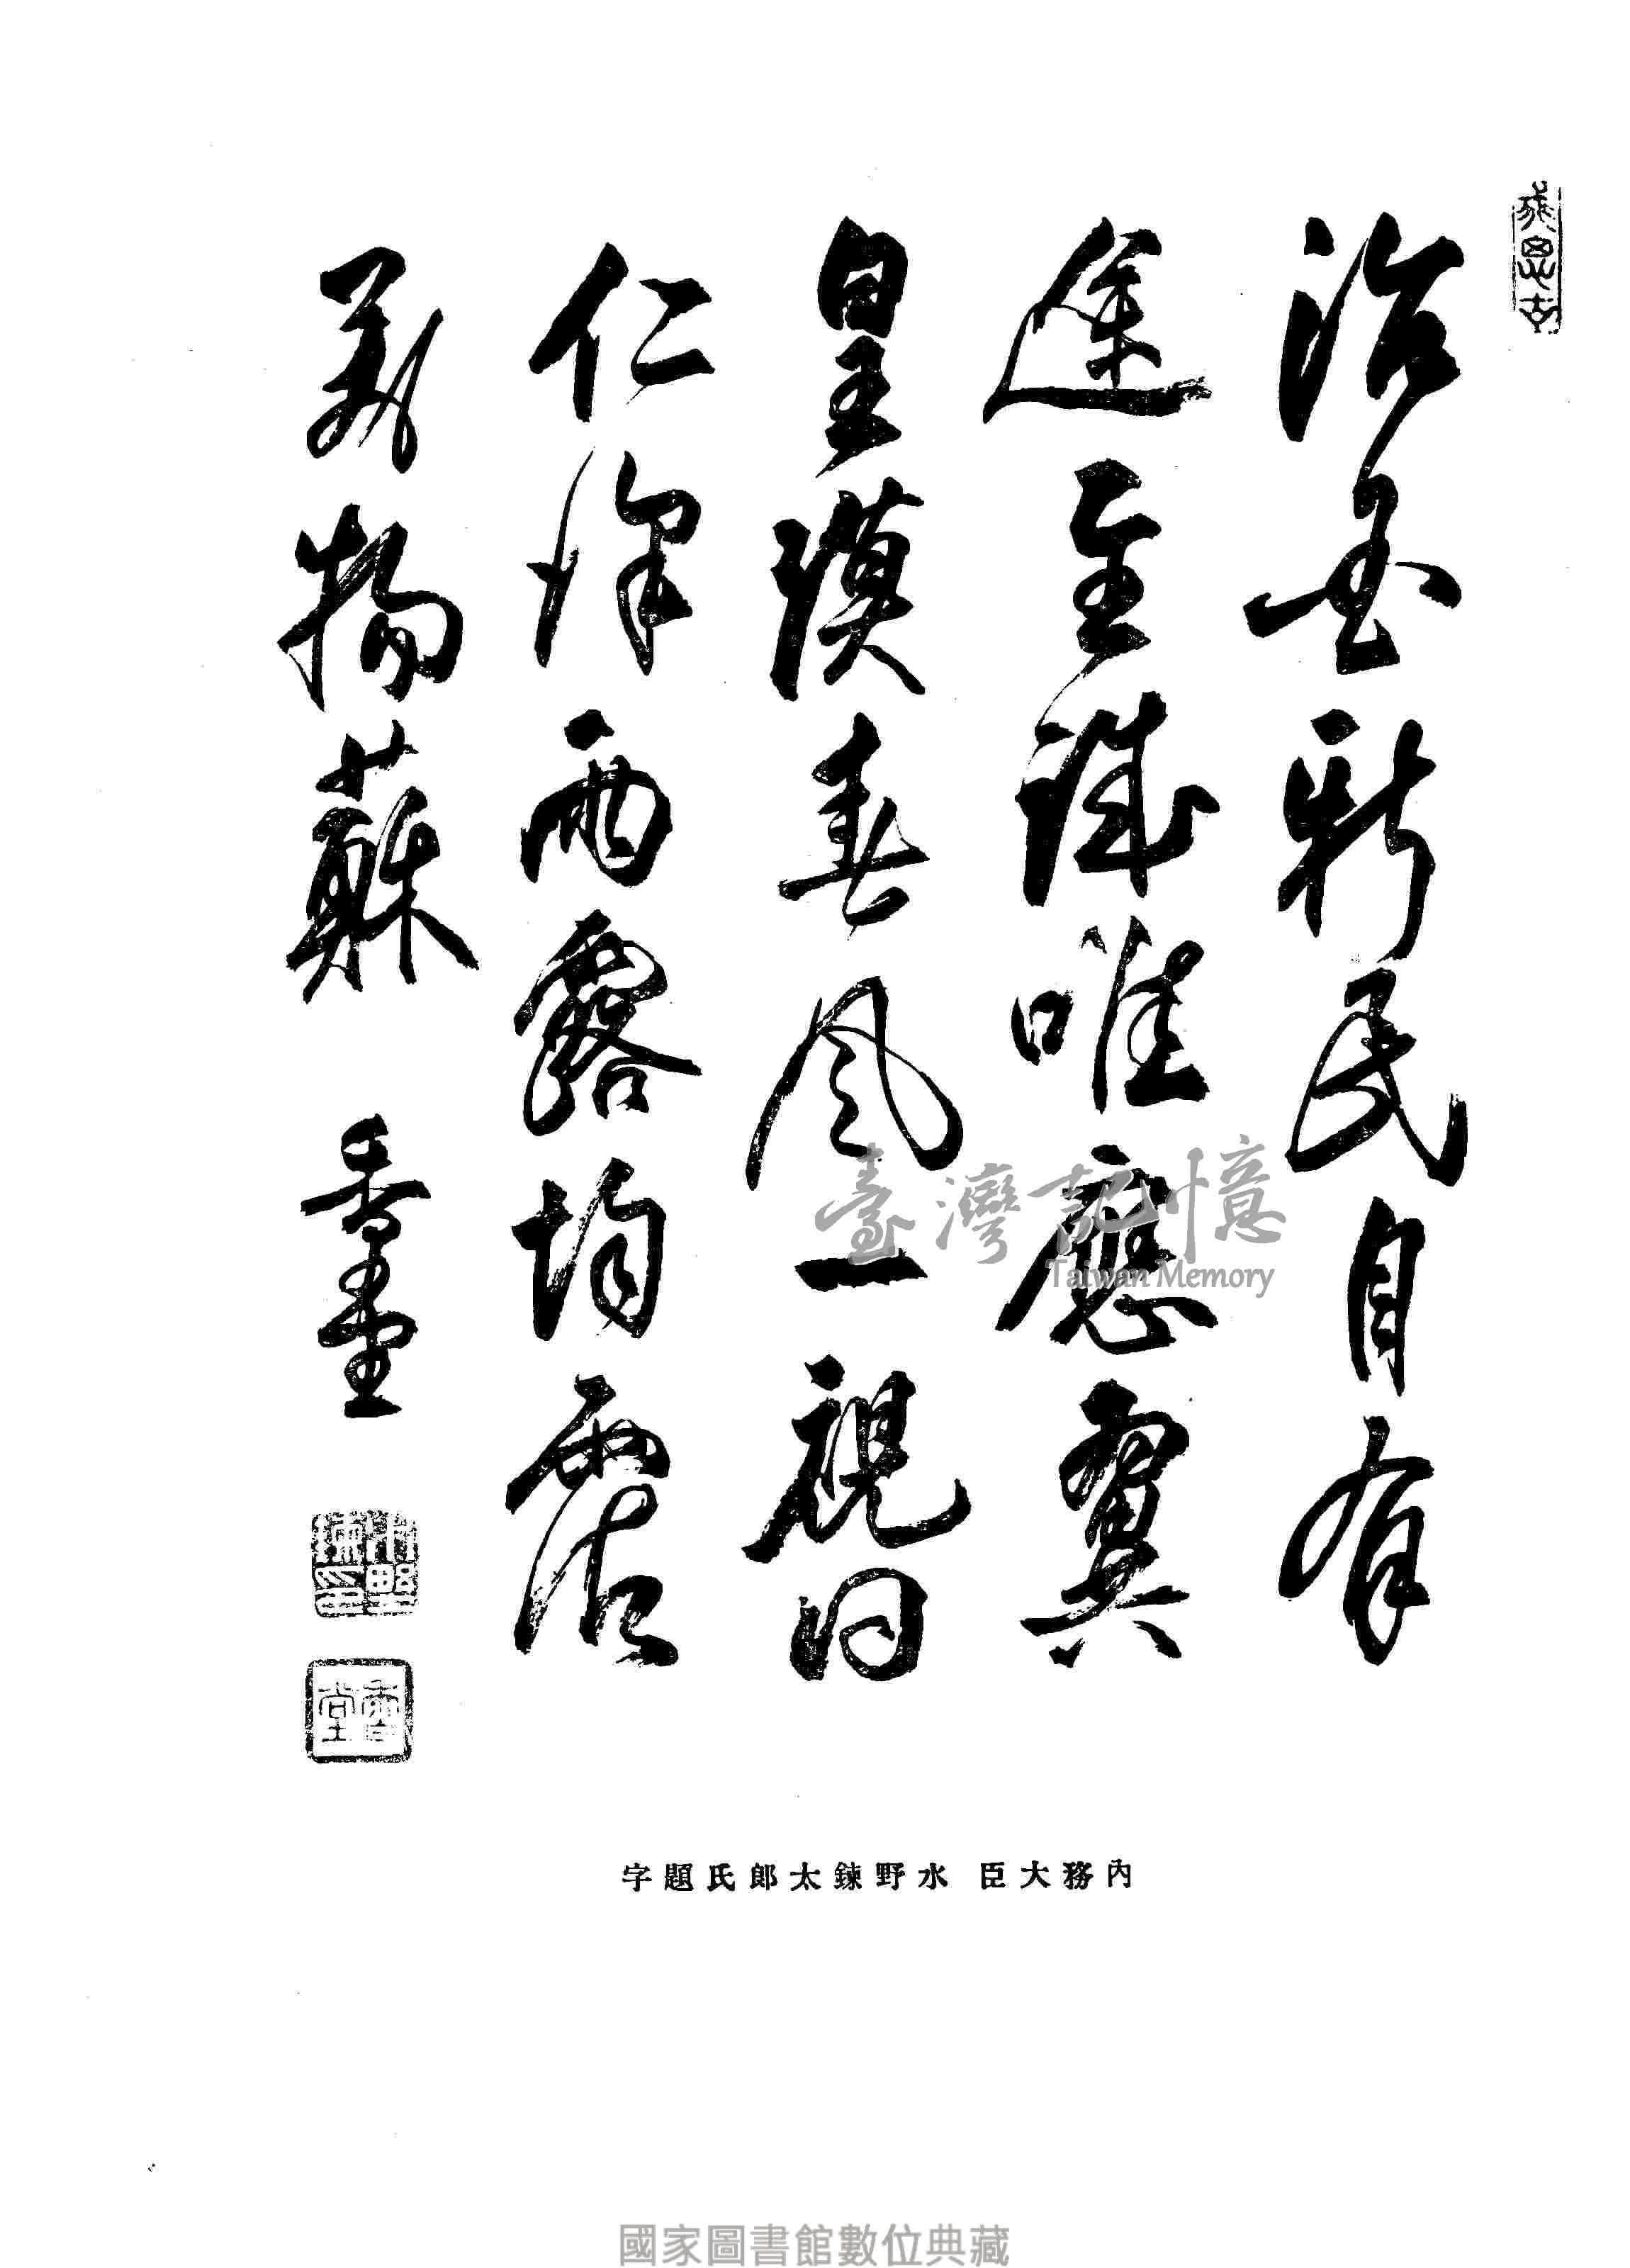 治臺新民自有
途至誠唯應翼
皇謨春風一視同
仁澤雨露均霑
萬物蘇 香堂
水野鍊印
香堂
內務大臣 水野鍊太郎氏題字
臺灣記憶
Taiwan Memory
國家圖書館數位典藏